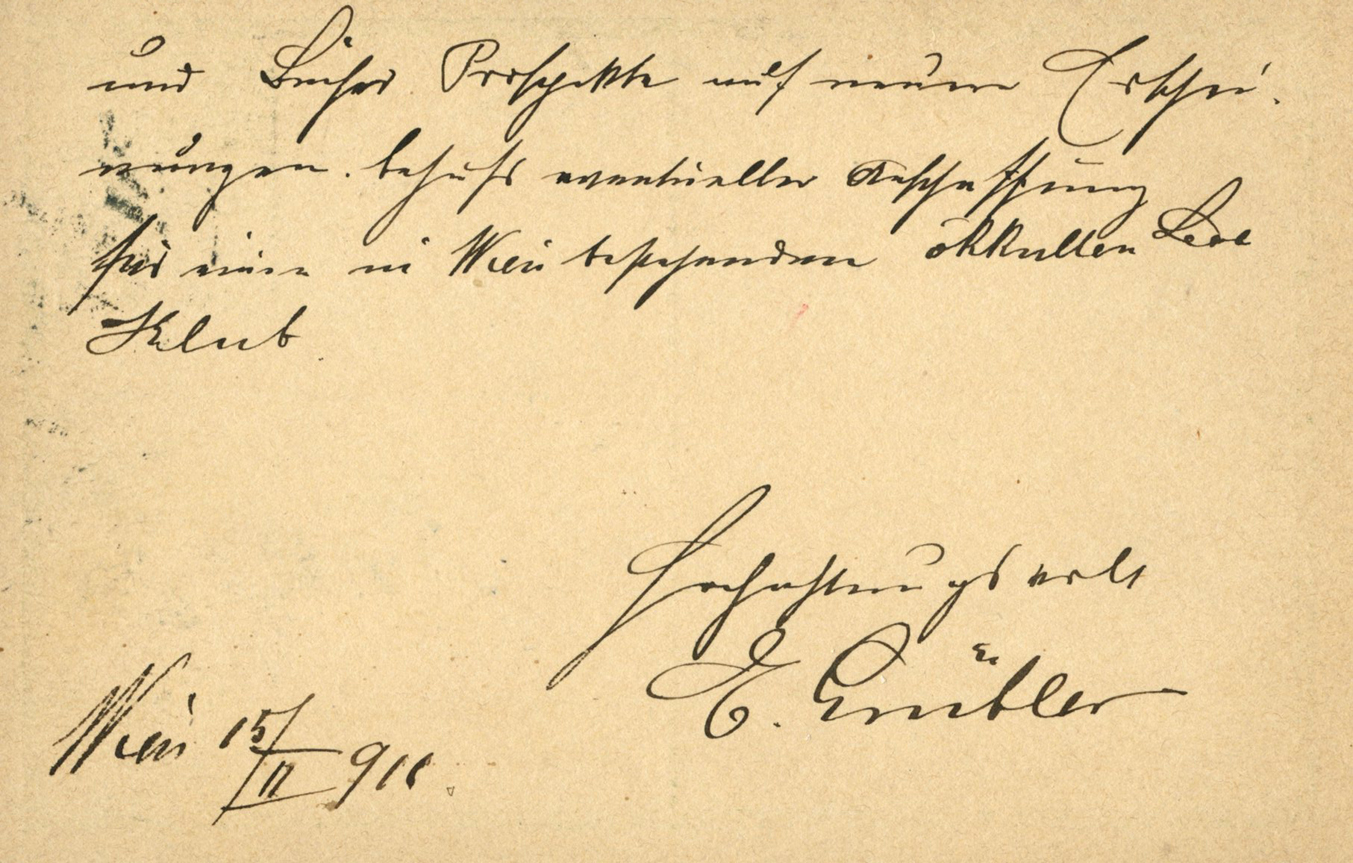 und Bücher Prospekte auf neuere Erschei-
nungen behufs eventueller Anschaffung
für einen in Wien bestehenden okkulten Lese
Klub
Hochachtungsvoll
E.
Wien 15/II 911.